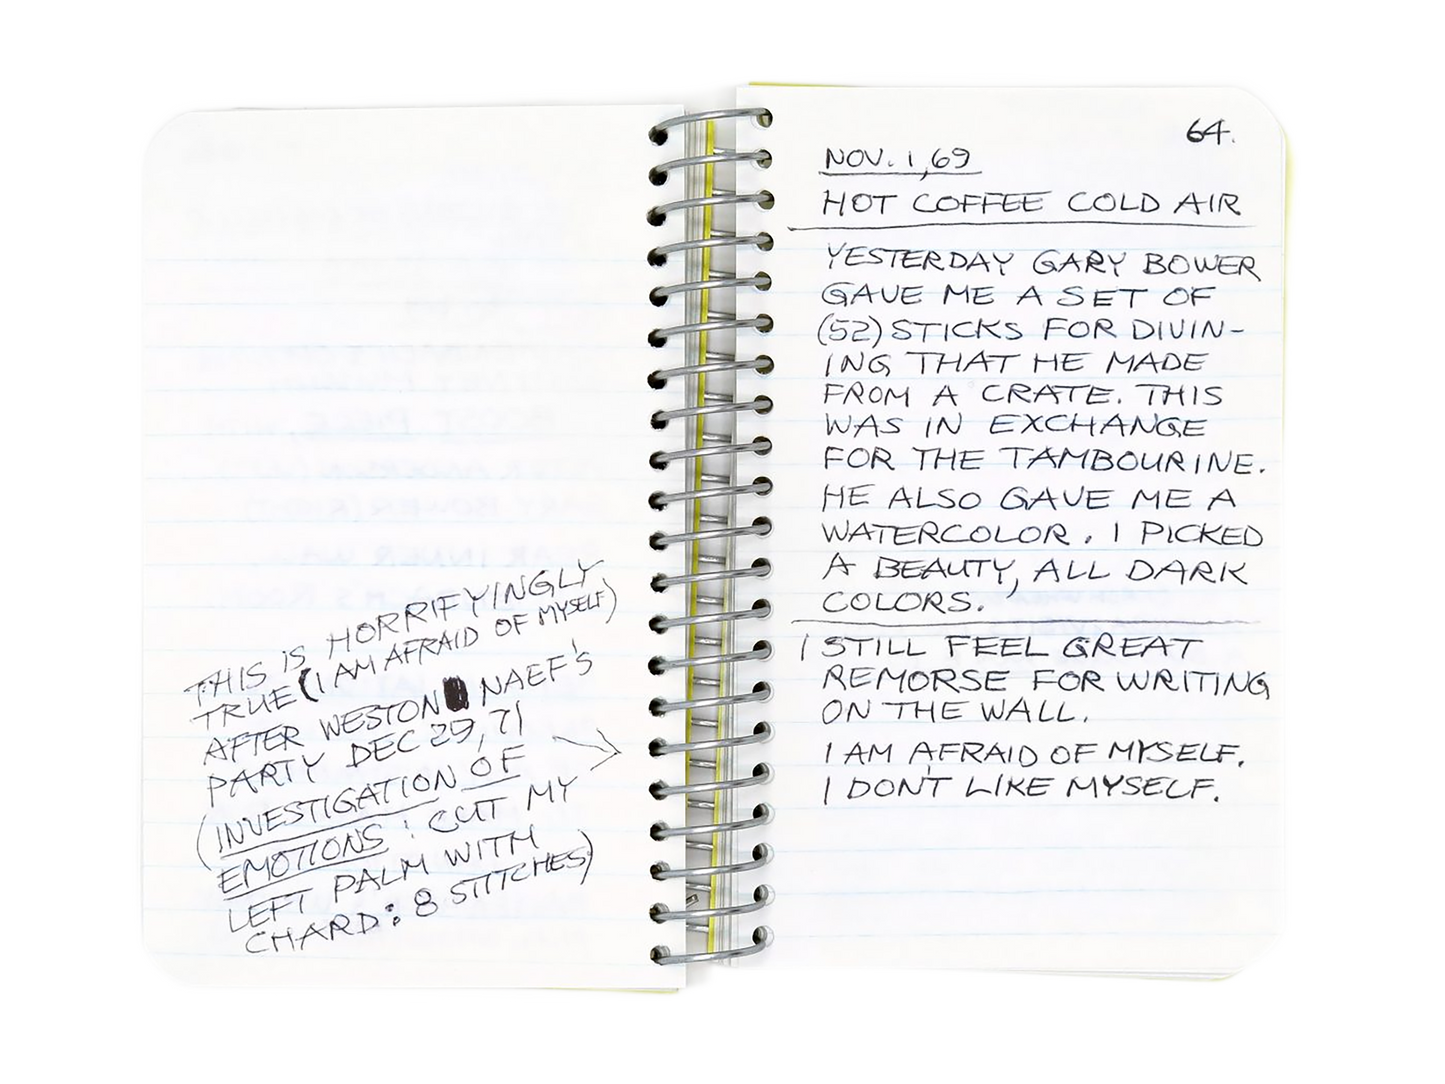 THIS IS HORRIFYINGLY
TRUE (I AM AFRAID OF MYSELF)
AFTER WESTON NAEF'S
PARTY DEC 29, 71
(INVESTIGATION OF
EMOTIONS: CUT MY
LEFT PALM WITH
CHARD: 8 STITCHES)
64.
NOV. 1, 69
HOT COFFEE COLD AIR
YESTERDAY GARY BOWER
GAVE ME A SET OF
(52) STICKS FOR DIVIN-
ING THAT HE MADE
FROM A CRATE. THIS
WAS IN EXCHANGE
FOR THE TAMBOURINE.
HE ALSO GAVE ME A
WATERCOLOR. I PICKED
A BEAUTY, ALL DARK
COLORS.
I STILL FEEL GREAT
REMORSE FOR WRITING
ON THE WALL.
I AM AFRAID OF MYSELF.
I DON'T LIKE MYSELF.